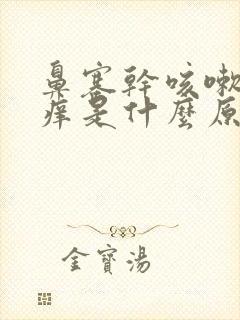 鼻塞幹咳嗽
癢是什麼原
金寶湯